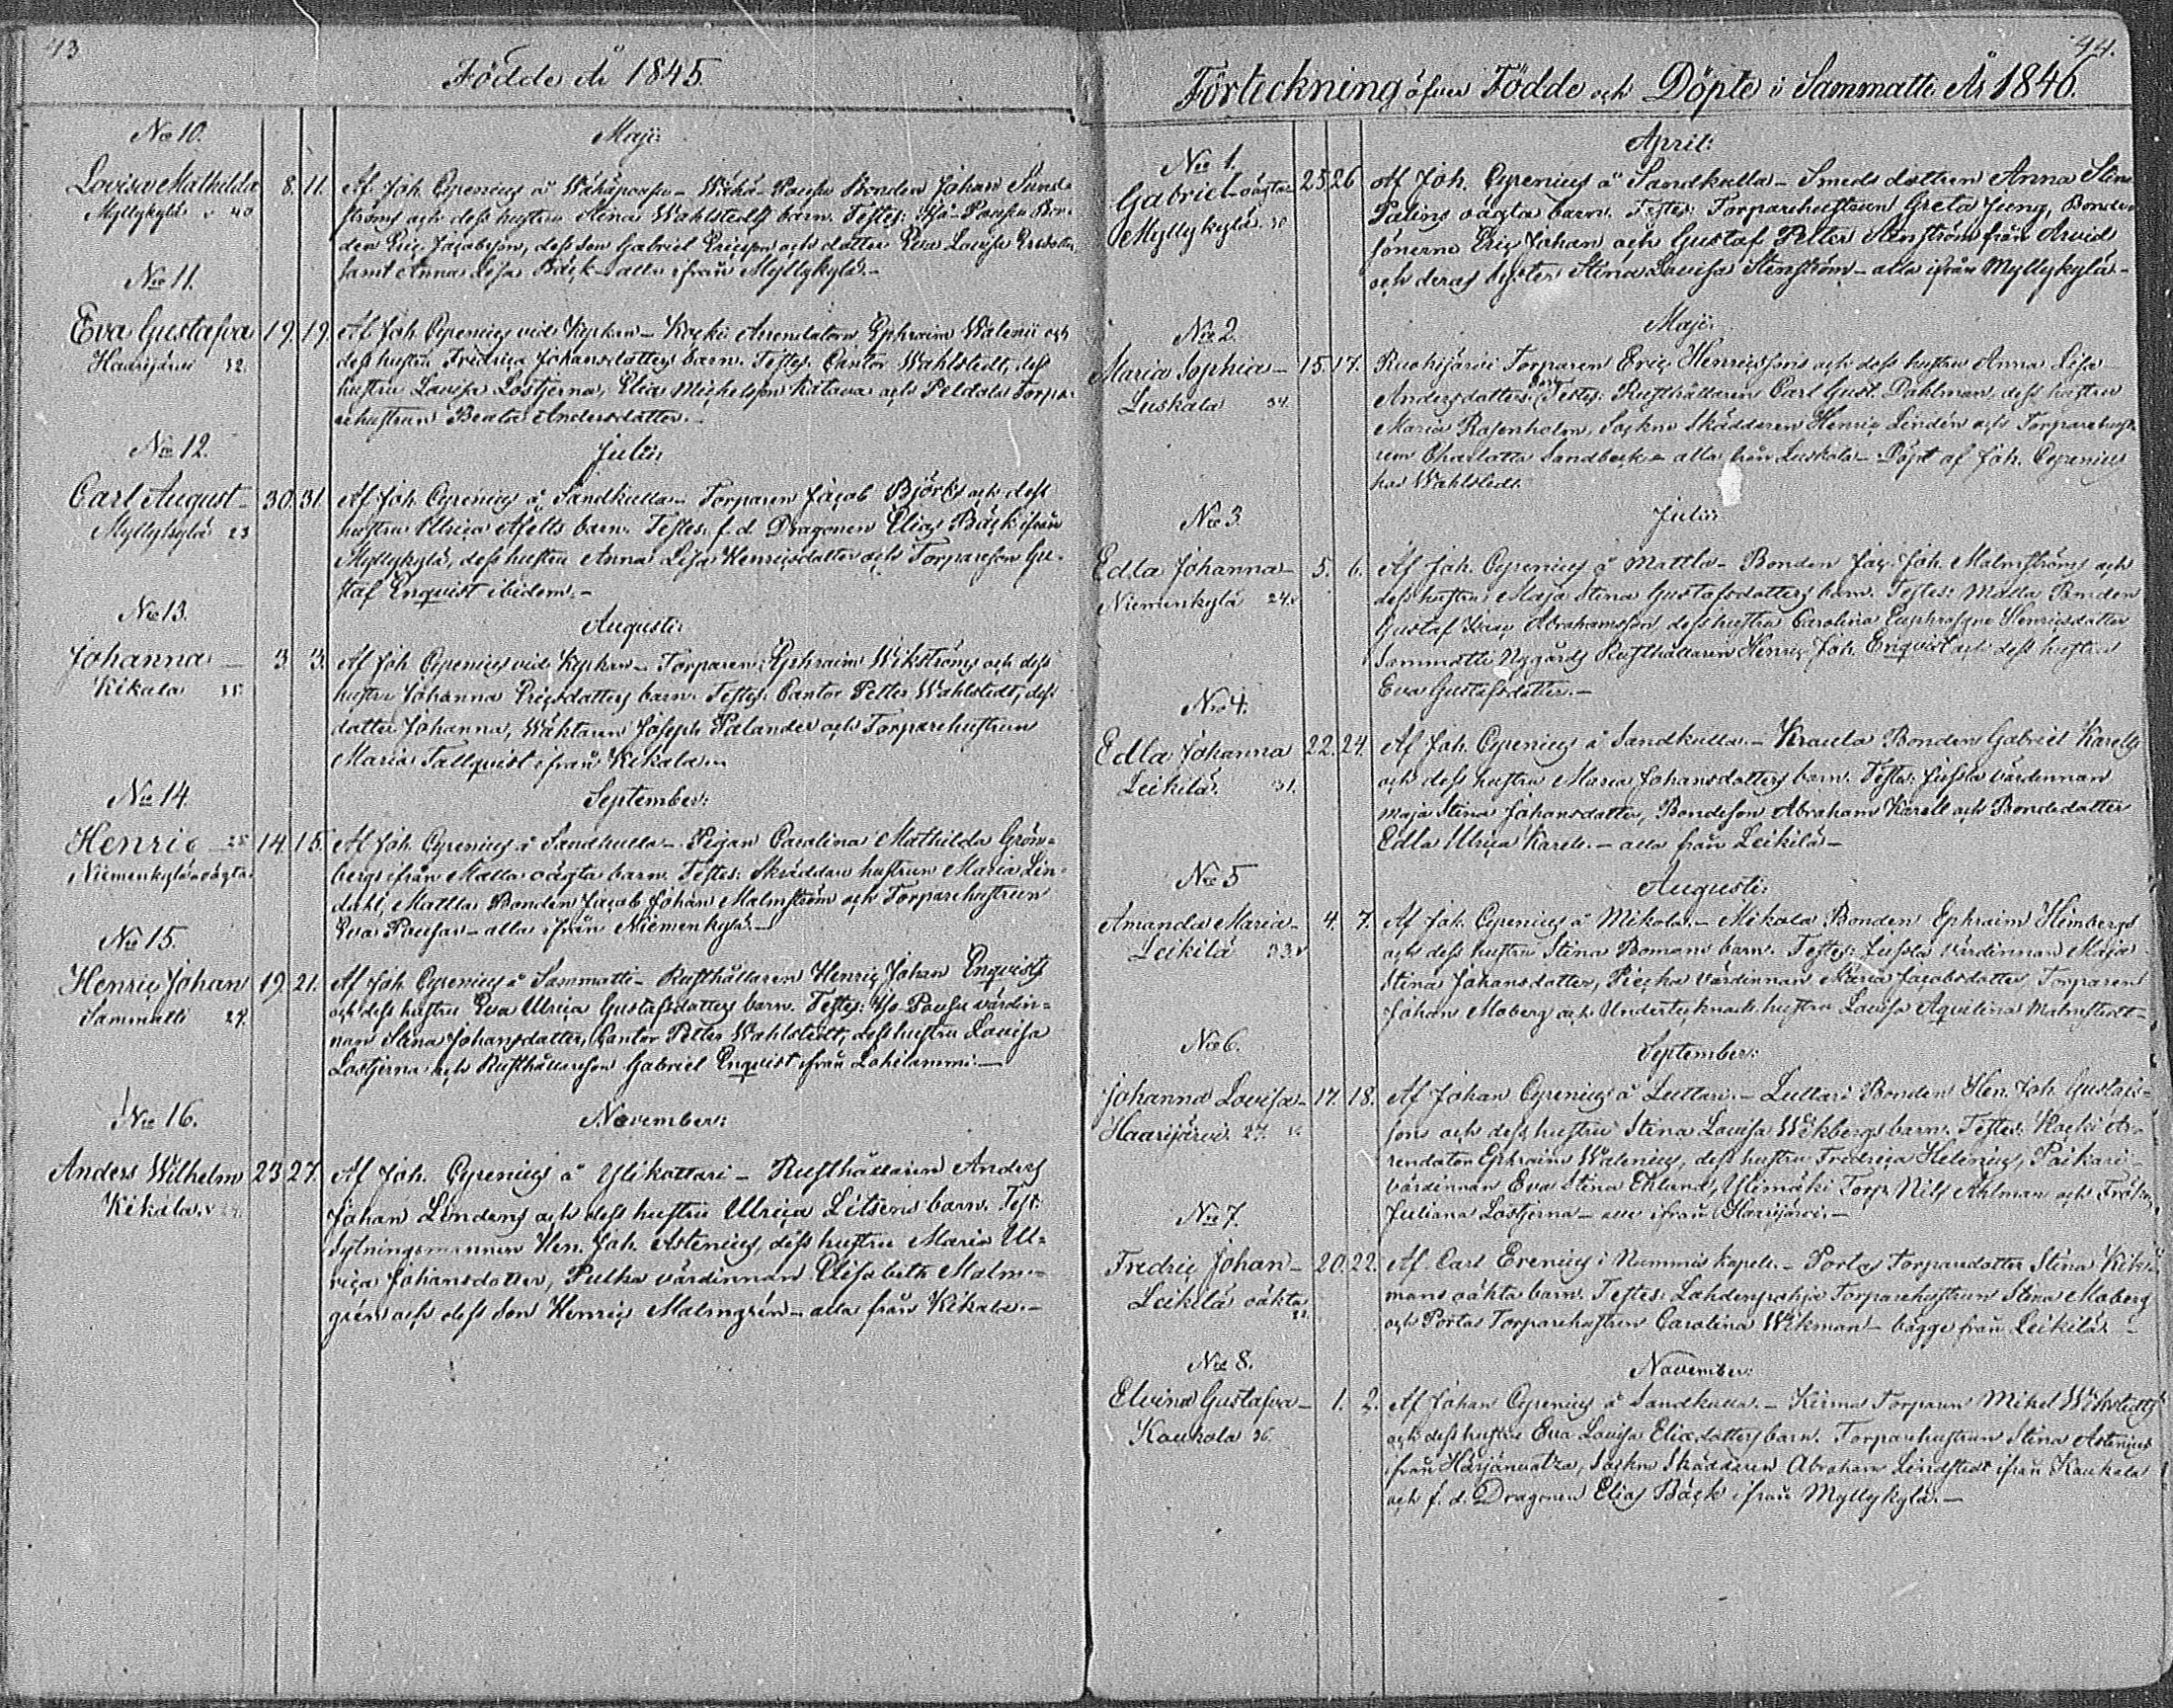 43
Födde År 1845.
No 10.
Maji:
Lovisa Mathilda 8. 11. Af Joh. Cyrenius å Wähäpausu – Wähä-Pausu Bonden Johan Sund-
Myllykylä 40 ströms och dess hustru Stina Wahlstedts barn. Testes: Iso-Pausu Bon-
den Eric Jacobsson, dess son Gabriel Ericsson och dotter Eva Lovisa
samt Anna Lisa Bäck – alla ifrån Myllykylä. –
No 11.
Eva Gustafva 19. 19. Af Joh. Cyrenius vid Kyrkan – Arrendatorn Ephraim Walenii och
Haarijärvi 32. dess hustru Fredrica Johansdotters barn. Testes: Cantor Wahlstedt, dess
hustru Lovisa Lostjerna, Elia Michelsson Katava och Peldola Torpa-
rehustrun Beata Andersdotter. –
No 12.
Julii:
Carl August 30. 31. Af Joh. Cyrenius å Sandkulla – Torparen Jacob Björks och dess
Myllykylä 23 hustru Ulrica Afells barn. Testes: f. d. Dragonen Elias Bäck ifrån
Myllykylä, dess hustru Anna Lisa Henricsdotter och Torpareson Gu-
staf Enqvist ibidem. –
No 13.
Augusti:
Johanna 3. 3. Af Joh. Cyrenius vid Kyrkan – Torparen Ephraim Wikströms och dess
Kikala 35. hustru Johanna Ericsdotters barn. Testes: Cantor Petter Wahlstedt, dess
dotter Johanna, Wäktaren Joseph Palander och Torparehustrun
Maria Tallqvist ifrån Kikala. –
No 14.
September:
Henric 25 14. 15. Af Joh. Cyrenius å Sandkulla – Pigan Carolina Mathilda Grön-
Niemenkylä oägta. bergs ifrån Matla oägta barn. Testes: Skräddare hustrun Maria Lin-
dahl, Matlas Bonden Jacob Johan Malmström och Torparehustrun
Eva Pousar – alla ifrån Niemenkylä. –
No 15.
Henric Johan 19. 21. Af Joh. Cyrenius å Sammatti – Rusthållaren Henric Johan Enqvists
Sammatti 24. och dess hustru Eva Ulrica Gustafsdotters barn. Testes: Iso-Pausu värdin-
nan Stina Johansdotter, Cantor Petter Wahlstedt, dess hustru Lovisa
Lostjerna och Rusthållareson Gabriel Enqvist ifrån Lohilammi. –
No 16.
November:
Anders Wilhelm 23. 27. Af Joh. Cyrenius å Ylikattari – Rusthållaren Anders
Kikala. Johan Lindens och dess hustru Ulrica Litsens barn. Test:
Sytningsmannen Hen. Joh. Astenius, dess hustru Maria Ul-
rica Johansdotter, Pulka värdinnan Elisabeth Malm-
grén och dess son Henric Malmgrén – alla från Kikala. –
44.
Förteckning öfver Födde och Döpte i Sammatti År 1846.
April:
No 1.
Gabriel oägta 25. 26 Af Joh. Cyrenius å Sandkulla – Smeds dottren Anna Stina
Myllykylä. 30 Palins oägta barn. Testes: Torparehustrun Greta Jung, Bonde-
sönerne Eric Johan och Gustaf Petter Stenström från Arvid
och deras syster Stina Lovisa Stenström – alla ifrån Myllykylä –
Maji:
No 2.
Maria Sophia – 15. 17. Ruohijärvi Torparen Eric Henricssons och dess hustru Anna Lisa
Luskala 34. Andersdotters barn. Testes: Rusthållaren Carl Gust. Dahlman, dess hustru
Maria Rosenholm, Sockne Skräddaren Henric Lindén och Torparehust-
run Charlotta Sandbeck – alla från Luskala – Döpt af Joh. Cyrenius
hos Wahlstedt.
No 3.
Julii:
Edla Johanna – 5. 6. Af Joh. Cyrenius å Mattla – Bonden Jac. Joh. Malmströms och
Niemenkylä 24. dess hustru Maja Stina Gustafsdotters barn. Testes: Matla Bonden
Gustaf Isac Abrahamsson, dess hustru Carolina Euphrosyne Henricsdotter
Sammatti Nygårds Rusthållaren Henric Joh. Enqvist och dess hustru
Eva Gustafsdotter. –
No 4.
Edla Johanna 22. 24. Af Joh. Cyrenius å Sandkulla. – Kraula Bonden Gabriel Karells
Leikilä. 31. och dess hustru Maria Johansdotters barn. Testes: Jussla värdinnan
Maja Stina Johansdotter, Bondeson Abraham Karell och Bondedotter
Edla Ulrica Karell. – alla från Leikilä –
No 5
Augusti:
Amanda Maria – 4. 7. Af Joh. Cyrenius å Mikola. – Mikola Bonden Ephraim Heimbergs
Leikilä 33. och dess hustru Stina Bomans barn. Testes: Jussla värdinnan Maja
Stina Johansdotter, Piecka värdinnan Maria Jacobsdotter, Torparen
Johan Moberg och Undertecknads hustru Lovisa Aquilina Malmstedt –
No 6.
September:
Johanna Lovisa – 17. 18. Af Johan Cyrenius å Luttari. – Luttari Bonden Hen. Joh. Gustafs-
Haarijärvi. 27. sons och dess hustru Stina Lovisa Wikbergs barn. Testes: Hacki Ar-
rendatorn Ephraim Walenius, dess hustru Fredrica Helenius, Paikari
värdinnan Eva Stina Eklund, Ylimäki Torp. Nils Ahlman och Fröken
Juliana Lostjerna – alla ifrån Haarijärvi. –
No 7.
Fredric Johan – 20. 22. Af Carl Erenius i Nummis Kapell. – Portas Torparedotter Stina Wik-
Leikilä oäkta 21. mans oäkta barn. Testes: Lahdenpohja Torparehustrun Stina Moberg
och Portas Torparehustrun Carolina Wikman – bägge från Leikilä. –
No 8.
November:
Elvina Gustafva – 1. 2. Af Johan Cyrenius å Sandkulla. – Kirma Torparen Mikel Wikstedts
Kaukola 36. och dess hustru Eva Lovisa Eliædotters barn. Torparehustrun Stina Astenius
ifrån Härjänvatza, Sockne Skräddaren Abraham Lindstedt ifrån Kaukola
och f. d. Dragonen Elias Bäck ifrån Myllykylä. –